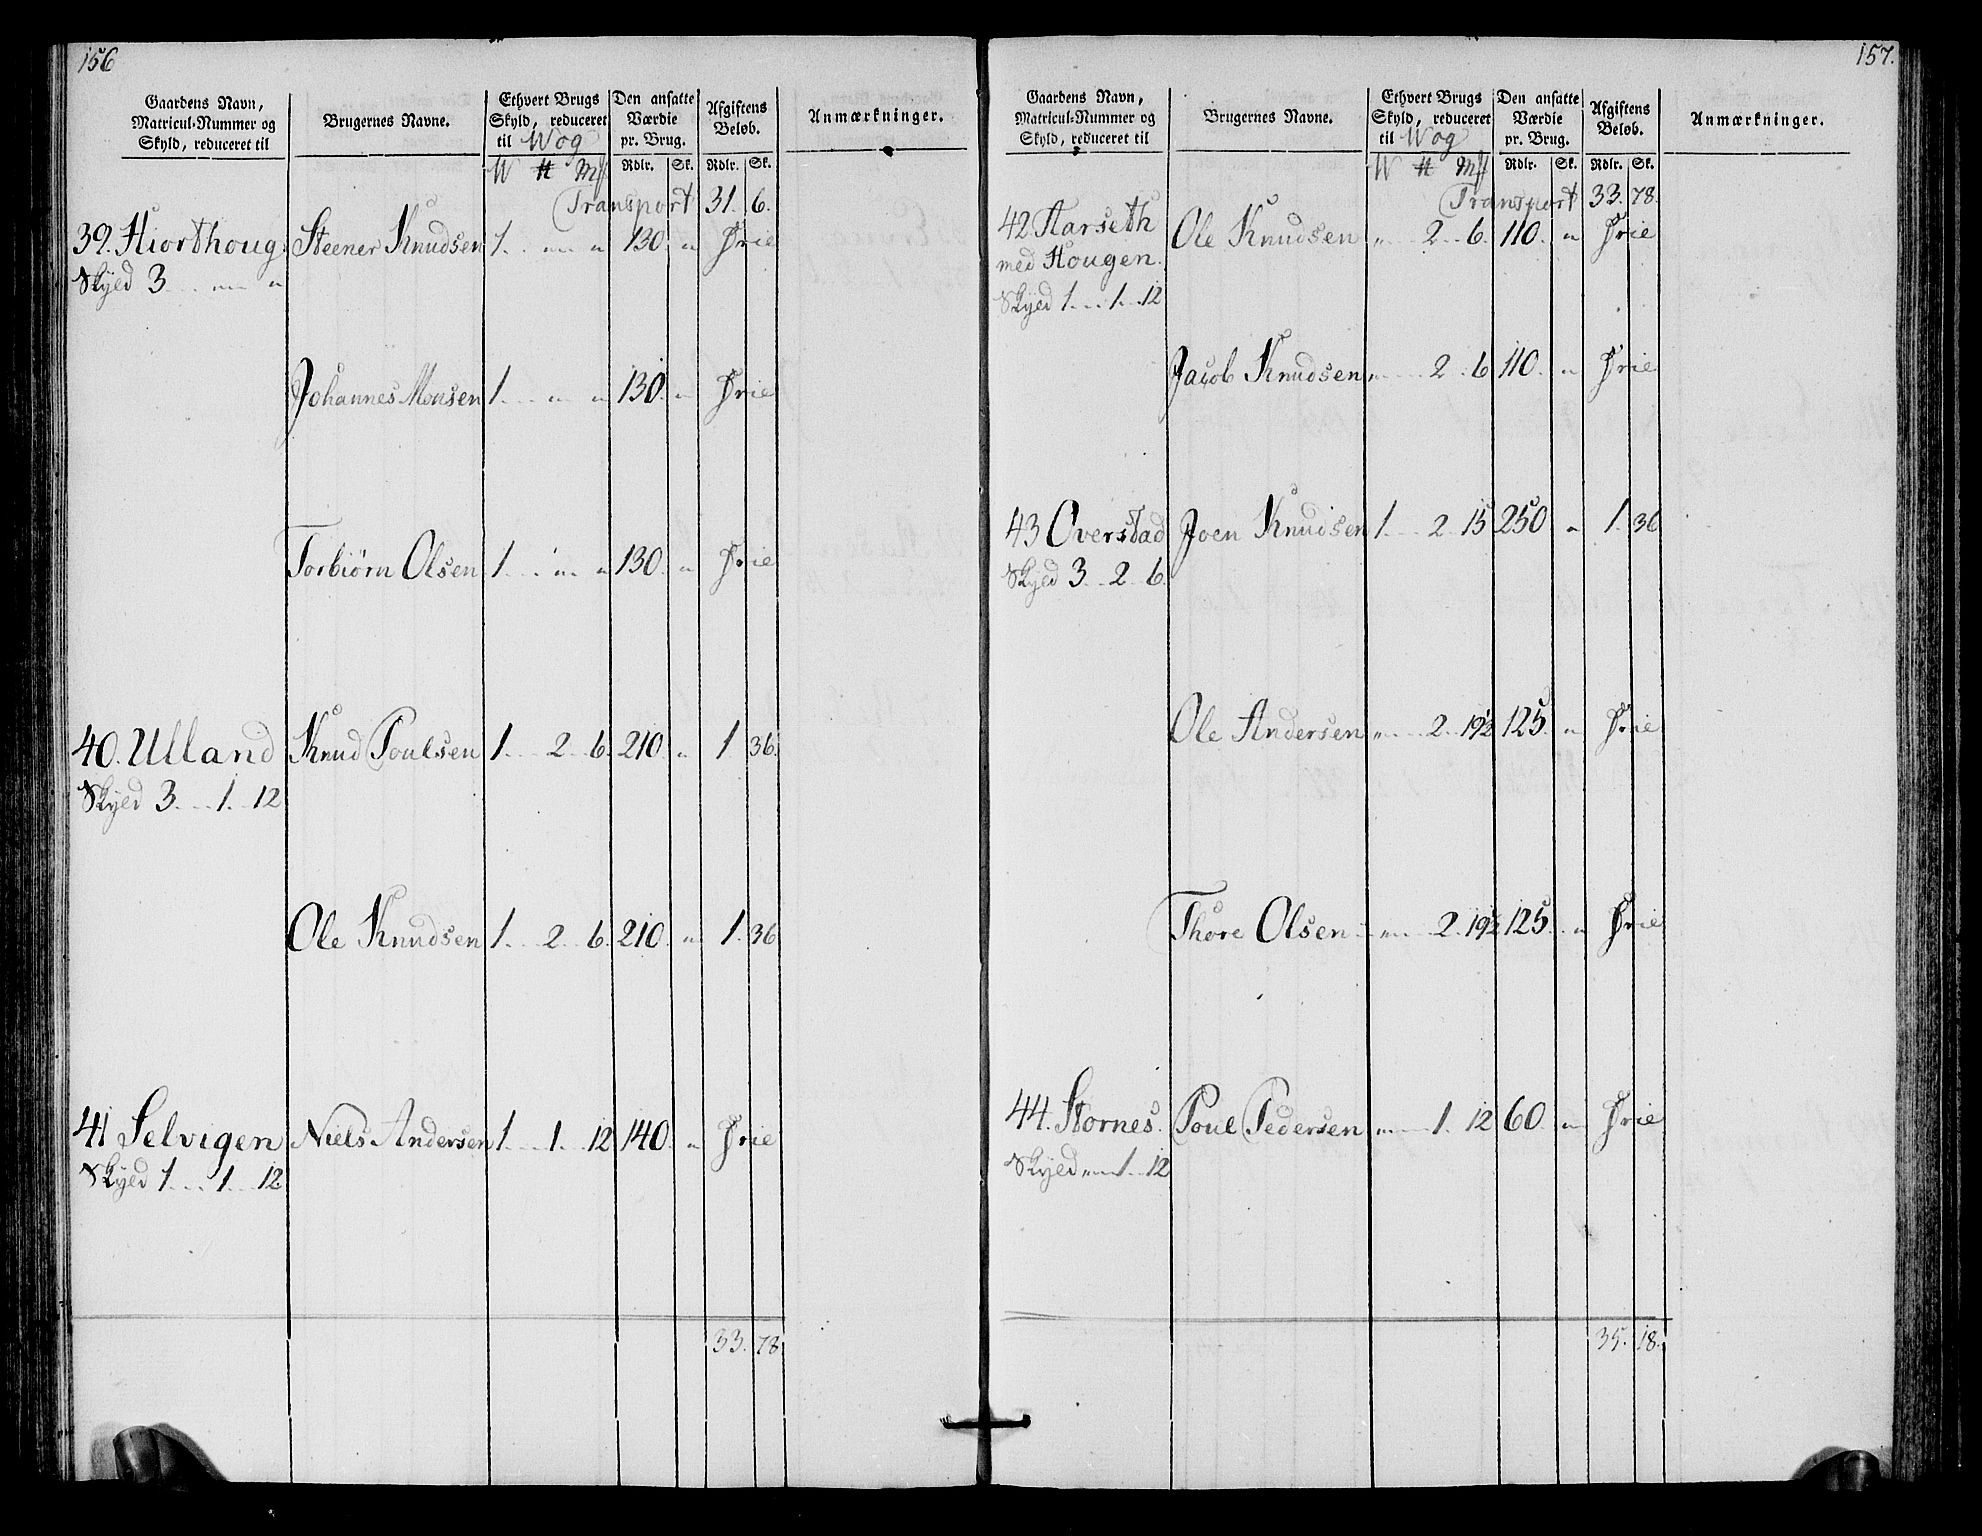 156
Gaardens Navn, Matricul-Nummer og Skyld, reduceret til | Brugernes Navne. | Ethvert Brugs Skyld, reduceret til Wog | Den ansatte Værdie pr. Brug. | Afgiftens Beløb. | Anmærkninger.
W ℔ Mk | Rdlr. Sk. | Rdlr. Sk.
Transport 31. 6.
39. Hiorthoug Steener Knudsen 1. " " 130. " Frie
Skyld 3. " "
Johannes Monsen 1. " " 130. " Frie
Torbiörn Olsen 1. " " 130. " Frie
40. Ulland Knud Poulsen 1. 2. 6. 210. " 1. 36.
Skyld 3. 1. 12
Ole Knudsen 1. 2. 6. 210. " 1. 36
41 Selvigen Niels Andersen 1. 1. 12 140. " Frie
Skyld 1. 1. 12
33. 78
157.
Gaardens Navn, Matricul-Nummer og Skyld, reduceret til | Brugernes Navne. | Ethvert Brugs Skyld, reduceret til Wog | Den ansatte Værdie pr. Brug. | Afgiftens Beløb. | Anmærkninger.
W ℔ Mk | Rdlr. Sk. | Rdlr. Sk.
Transport 33. 78.
42 Harseth Ole Knudsen " 2. 6. 110. " Frie
med Hougen.
Skyld 1. 1. 12
Jacob Knudsen " 2. 6 110. " Frie
43 Overstad Joen Knudsen 1. 2. 15 250 " 1. 36
Skyld 3. 2. 6.
Ole Andersen " 2. 19½ 125. " Frie
Thore Olsen " 2. 19½ 125. " Frie
44. Stornes. Poul Pedersen " 1. 12 60. " Frie
Skyld " 1. 12
35. 18.